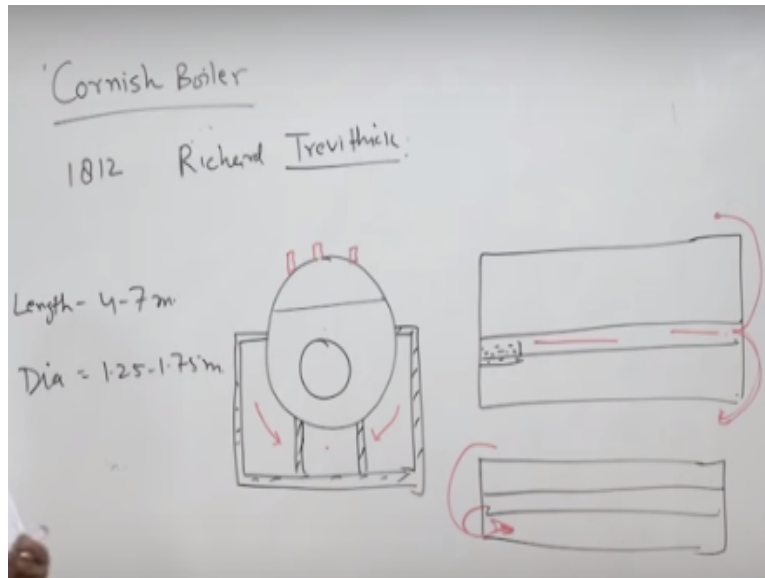 Cornish Boiler
1812 Richard Trevithick.
Length - 4-7 m.
Dia = 1.25-1.75 m